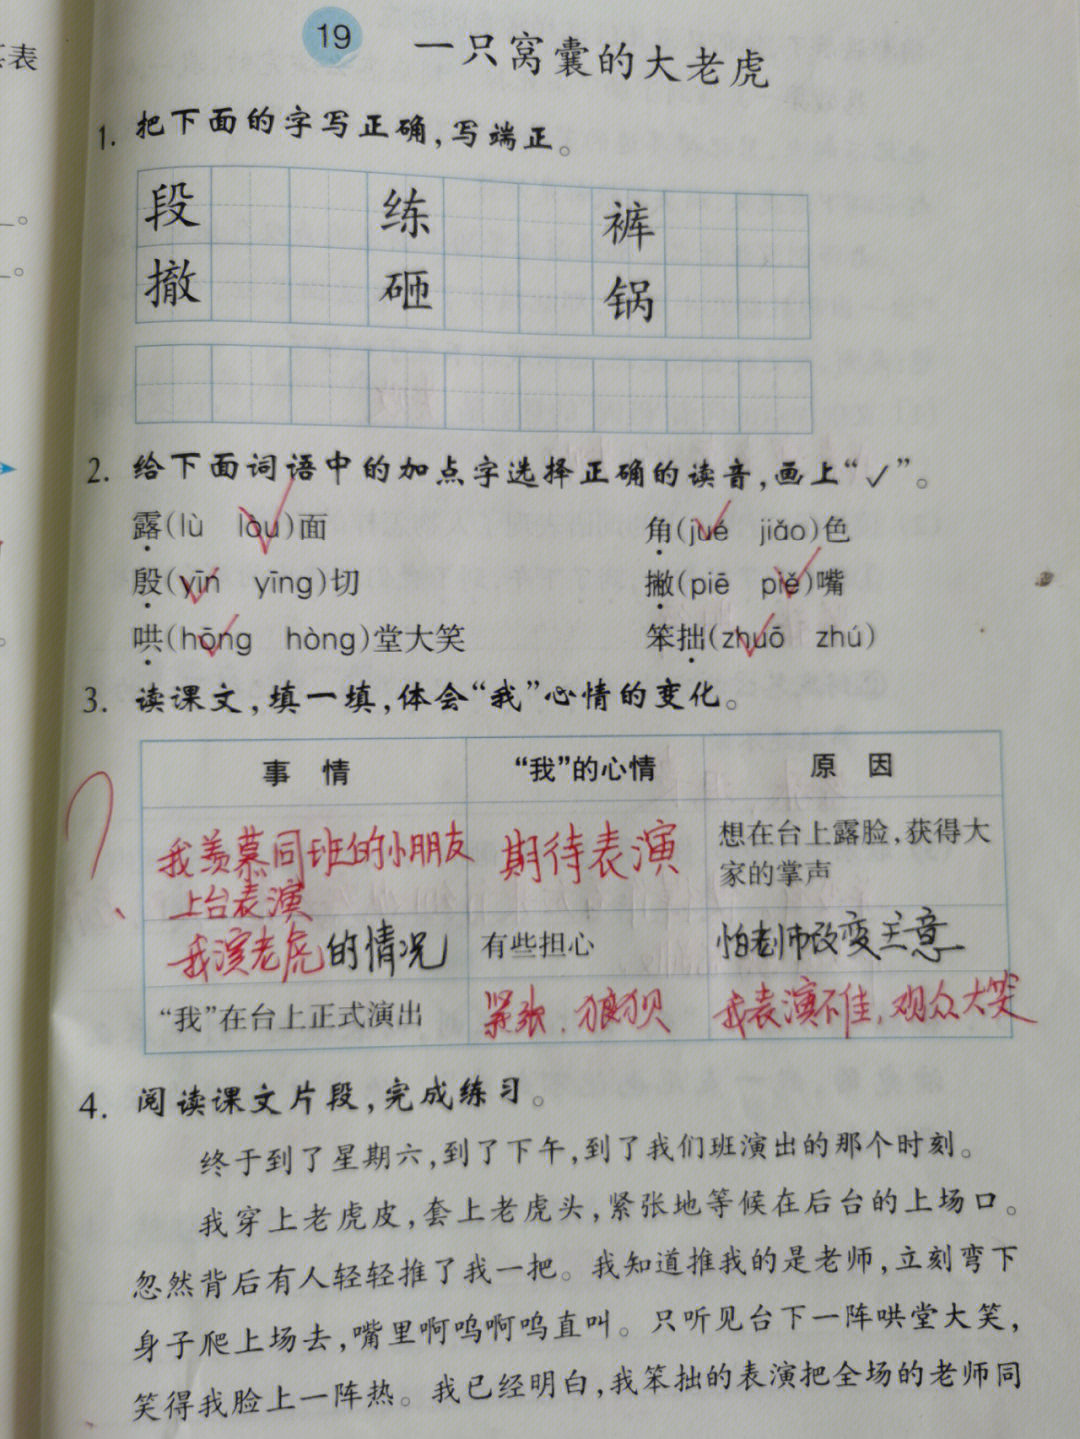 表
19 一只窝囊的大老虎
1. 把下面的字写正确,写端正。
段 练 裤
撤 砸 锅
2. 给下面词语中的加点字选择正确的读音,画上“✓”。
露(lù lòu)面 角(jué jiǎo)色
殷(yīn yīng)切 撇(piē piě)嘴
哄(hōng hòng)堂大笑 笨拙(zhuō zhú)
3. 读课文,填一填,体会“我”心情的变化。
事情 “我”的心情 原因
我羡慕同班的小朋友 期待表演 想在台上露脸,获得大
上台表演 家的掌声
我演老虎的情况 有些担心 怕老师改变主意
“我”在台上正式演出 紧张、狼狈 我表演不佳,观众大笑
4. 阅读课文片段,完成练习。
终于到了星期六,到了下午,到了我们班演出的那个时刻。
我穿上老虎皮,套上老虎头,紧张地等候在后台的上场口。
忽然背后有人轻轻推了我一把。我知道推我的是老师,立刻弯下
身子爬上场去,嘴里啊呜啊呜直叫。只听见台下一阵哄堂大笑,
笑得我脸上一阵热。我已经明白,我笨拙的表演把全场的老师同